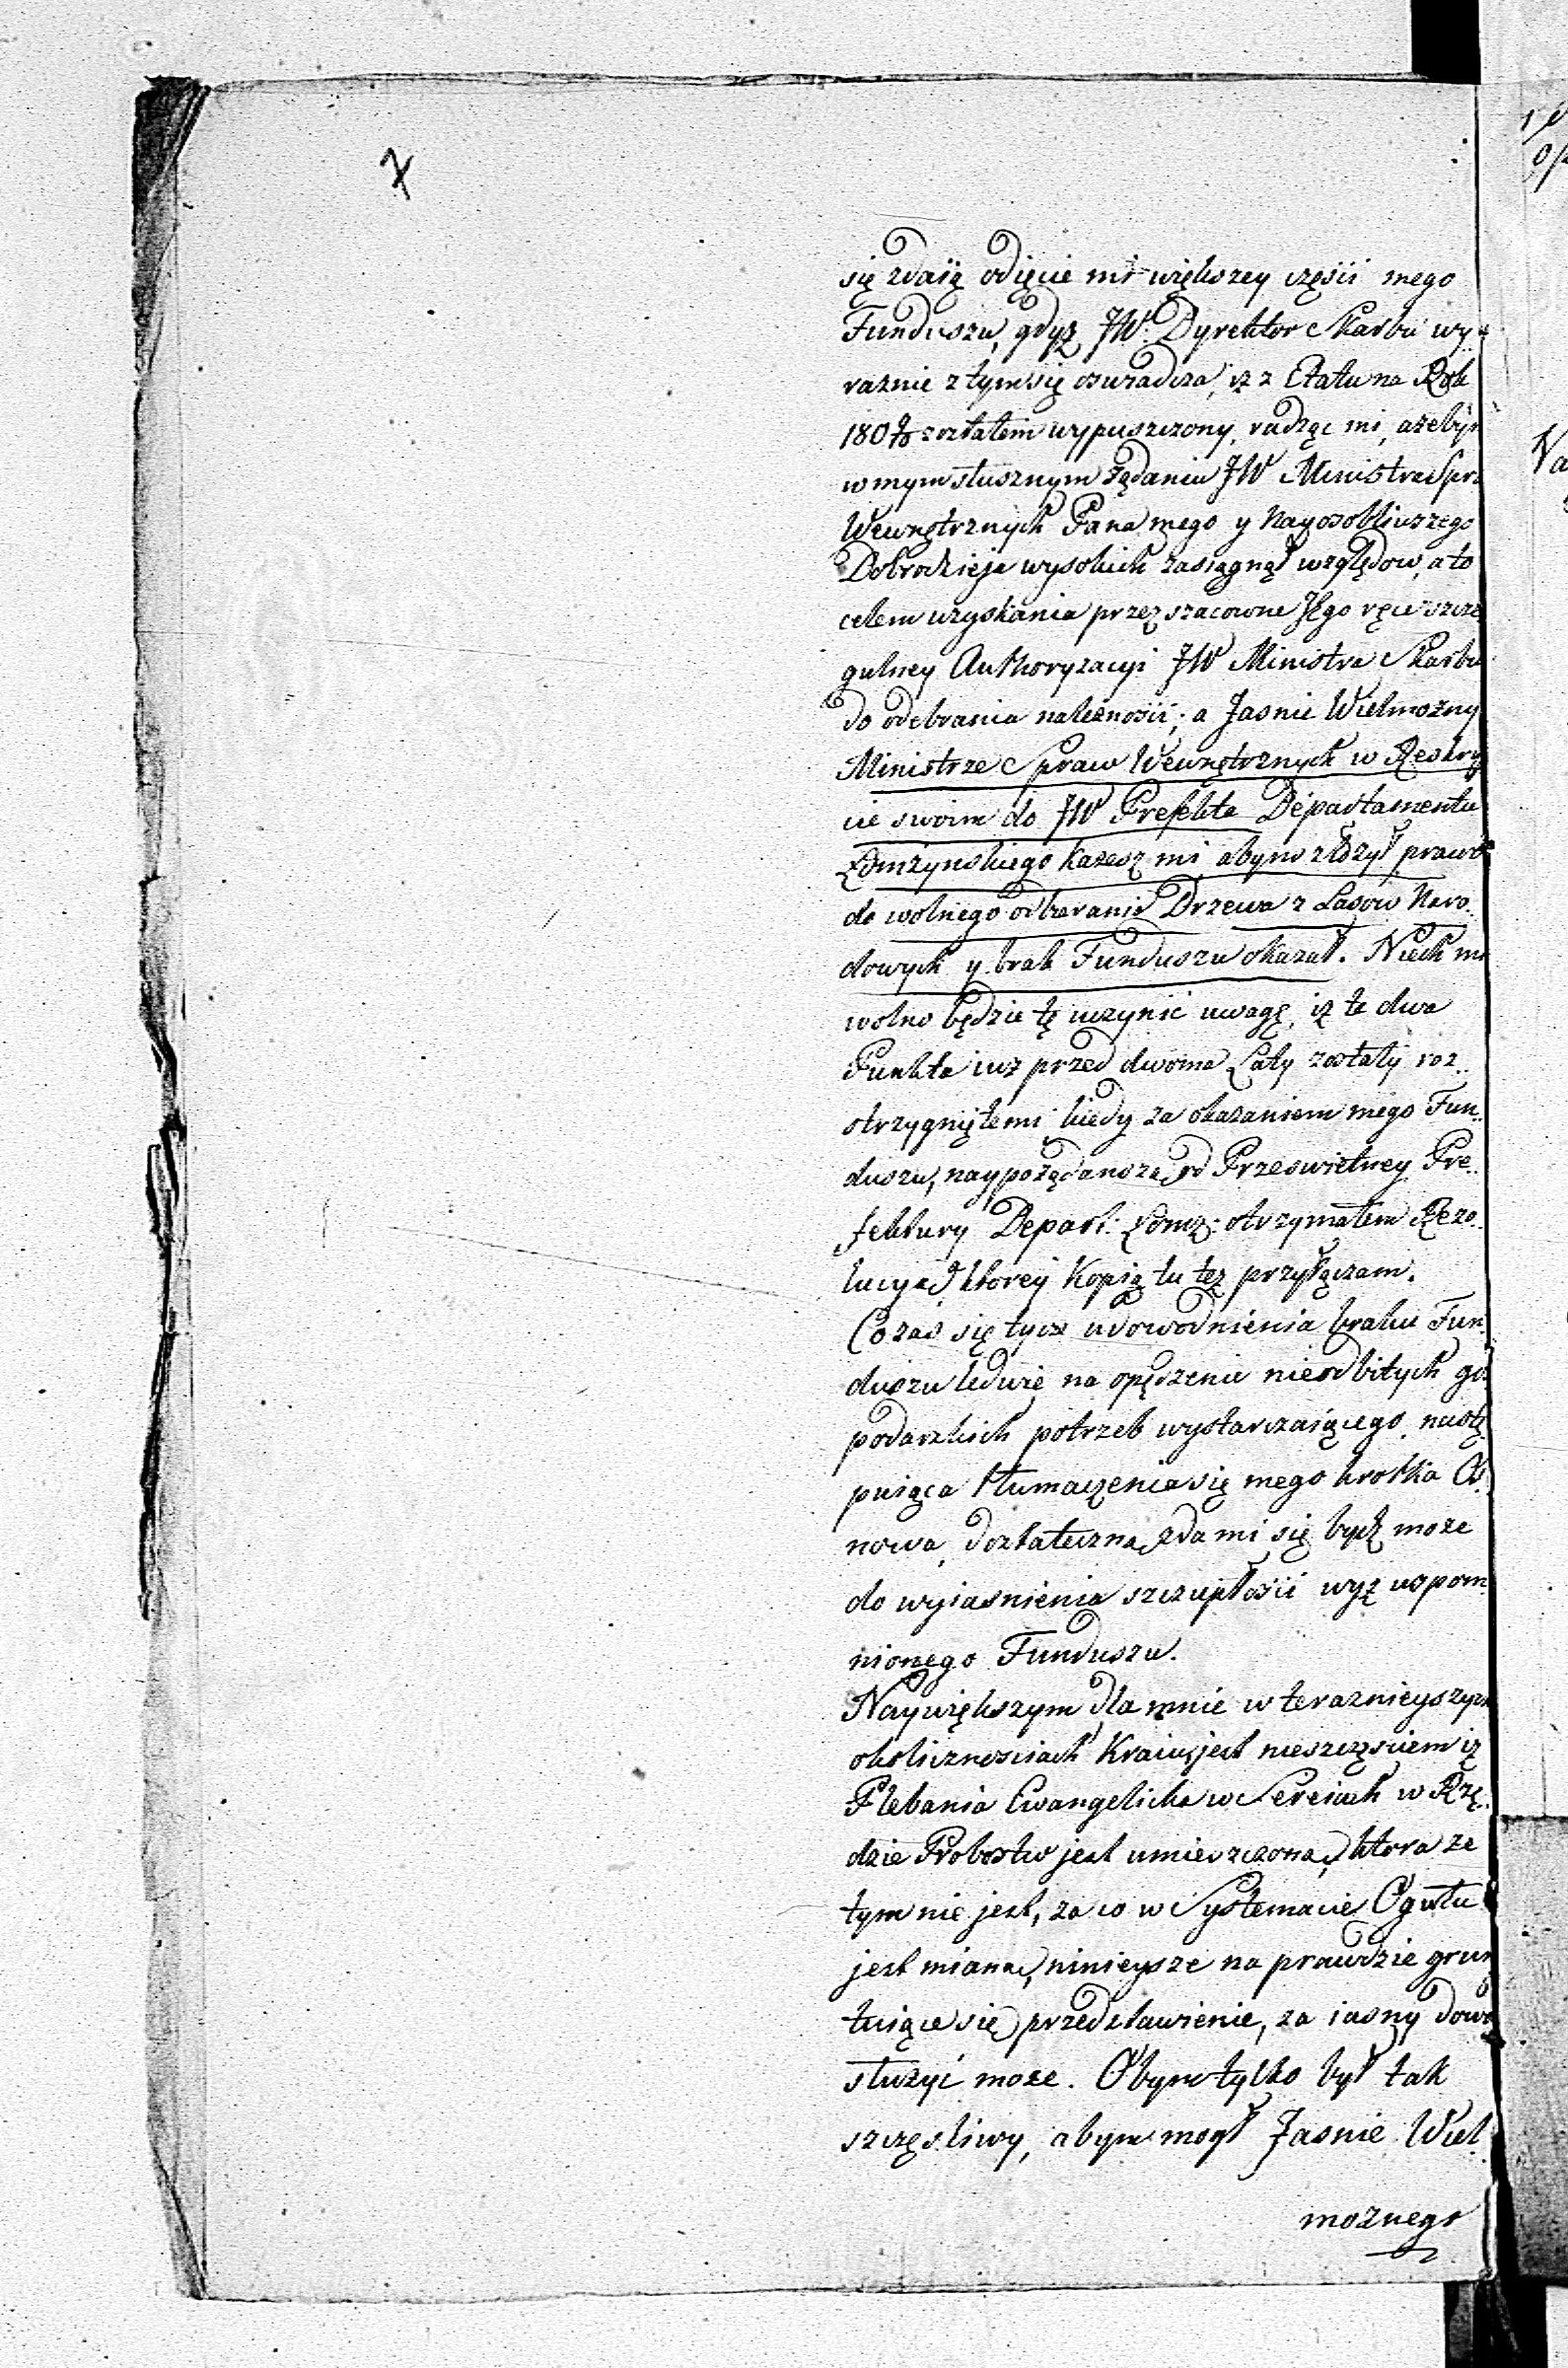 7
się zdaią odięcie mi większey częsci mego
Funduszu, gdyz JW. Dyrektor Skarbu wy-
raznie z tym się oswiadcza, iz z Etatu na Rok
180 9/10 zostałem wypuszczony, radząc mi, azebym
w mym słusznym żądaniu JW Ministra Spr:
Wewnętrznych Pana mego y Nayosobliwszego
Dobrodzieja wysokich zasiągnął względow, a to
celem uzyskania przez szacowne Jego ręce szcze
gulney Authoryzacyi JW Ministra Skarbu
do odebrania należnosci; a Jasnie Wielmożny
Ministrze Spraw Wewnętrznych w Reskry
cie swoim do JW Prefekta Departamentu
Łomżynskiego każesz mi abym złożył prawo
do wolnego odbierania Drzewa z Lasow Naro-
dowych y brak Funduszu okazał. Niech mi
wolno będzie tę uczynić uwagę, iz te dwa
Punkta iuz przed dwoma Laty zostały roz-
strzygniętemi kiedy za okazaniem mego Fun-
duszu, naypożądansze od Przeswietney Pre-
fektury Depart: Łomz: otrzymałem Rezo-
lucye, ktorey Kopią tu tez przyłączam.
Co zas się tycze udowodnienia braku Fun-
duszu ledwie na opędzenie nieodbitych go
podarskich potrzeb wystarczaiącego, nastę
puiąca tłumaczenia się mego krotka Os-
nowa, dostateczną zda mi się bydz może
do wyiasnienia szczupłosci wyz wspom-
nionego Funduszu.
Naywiększym dla mnie w teraznieyszych
okolicznosciach Kraiu jest nieszczęsciem iz
Plebania Ewangelicka w Sereiach w Rzę-
dzie Probostw jest umieszczona, ktora ze
tym nie jest, za co w Systemacie Ogułu
jest miana, ninieysze na prawdzie grun
tuiące się przedstawienie, za iasny dowo
słuzyć może. Obym tylko był tak
szczęsliwy, abym mogł Jasnie Wiel-
moznego